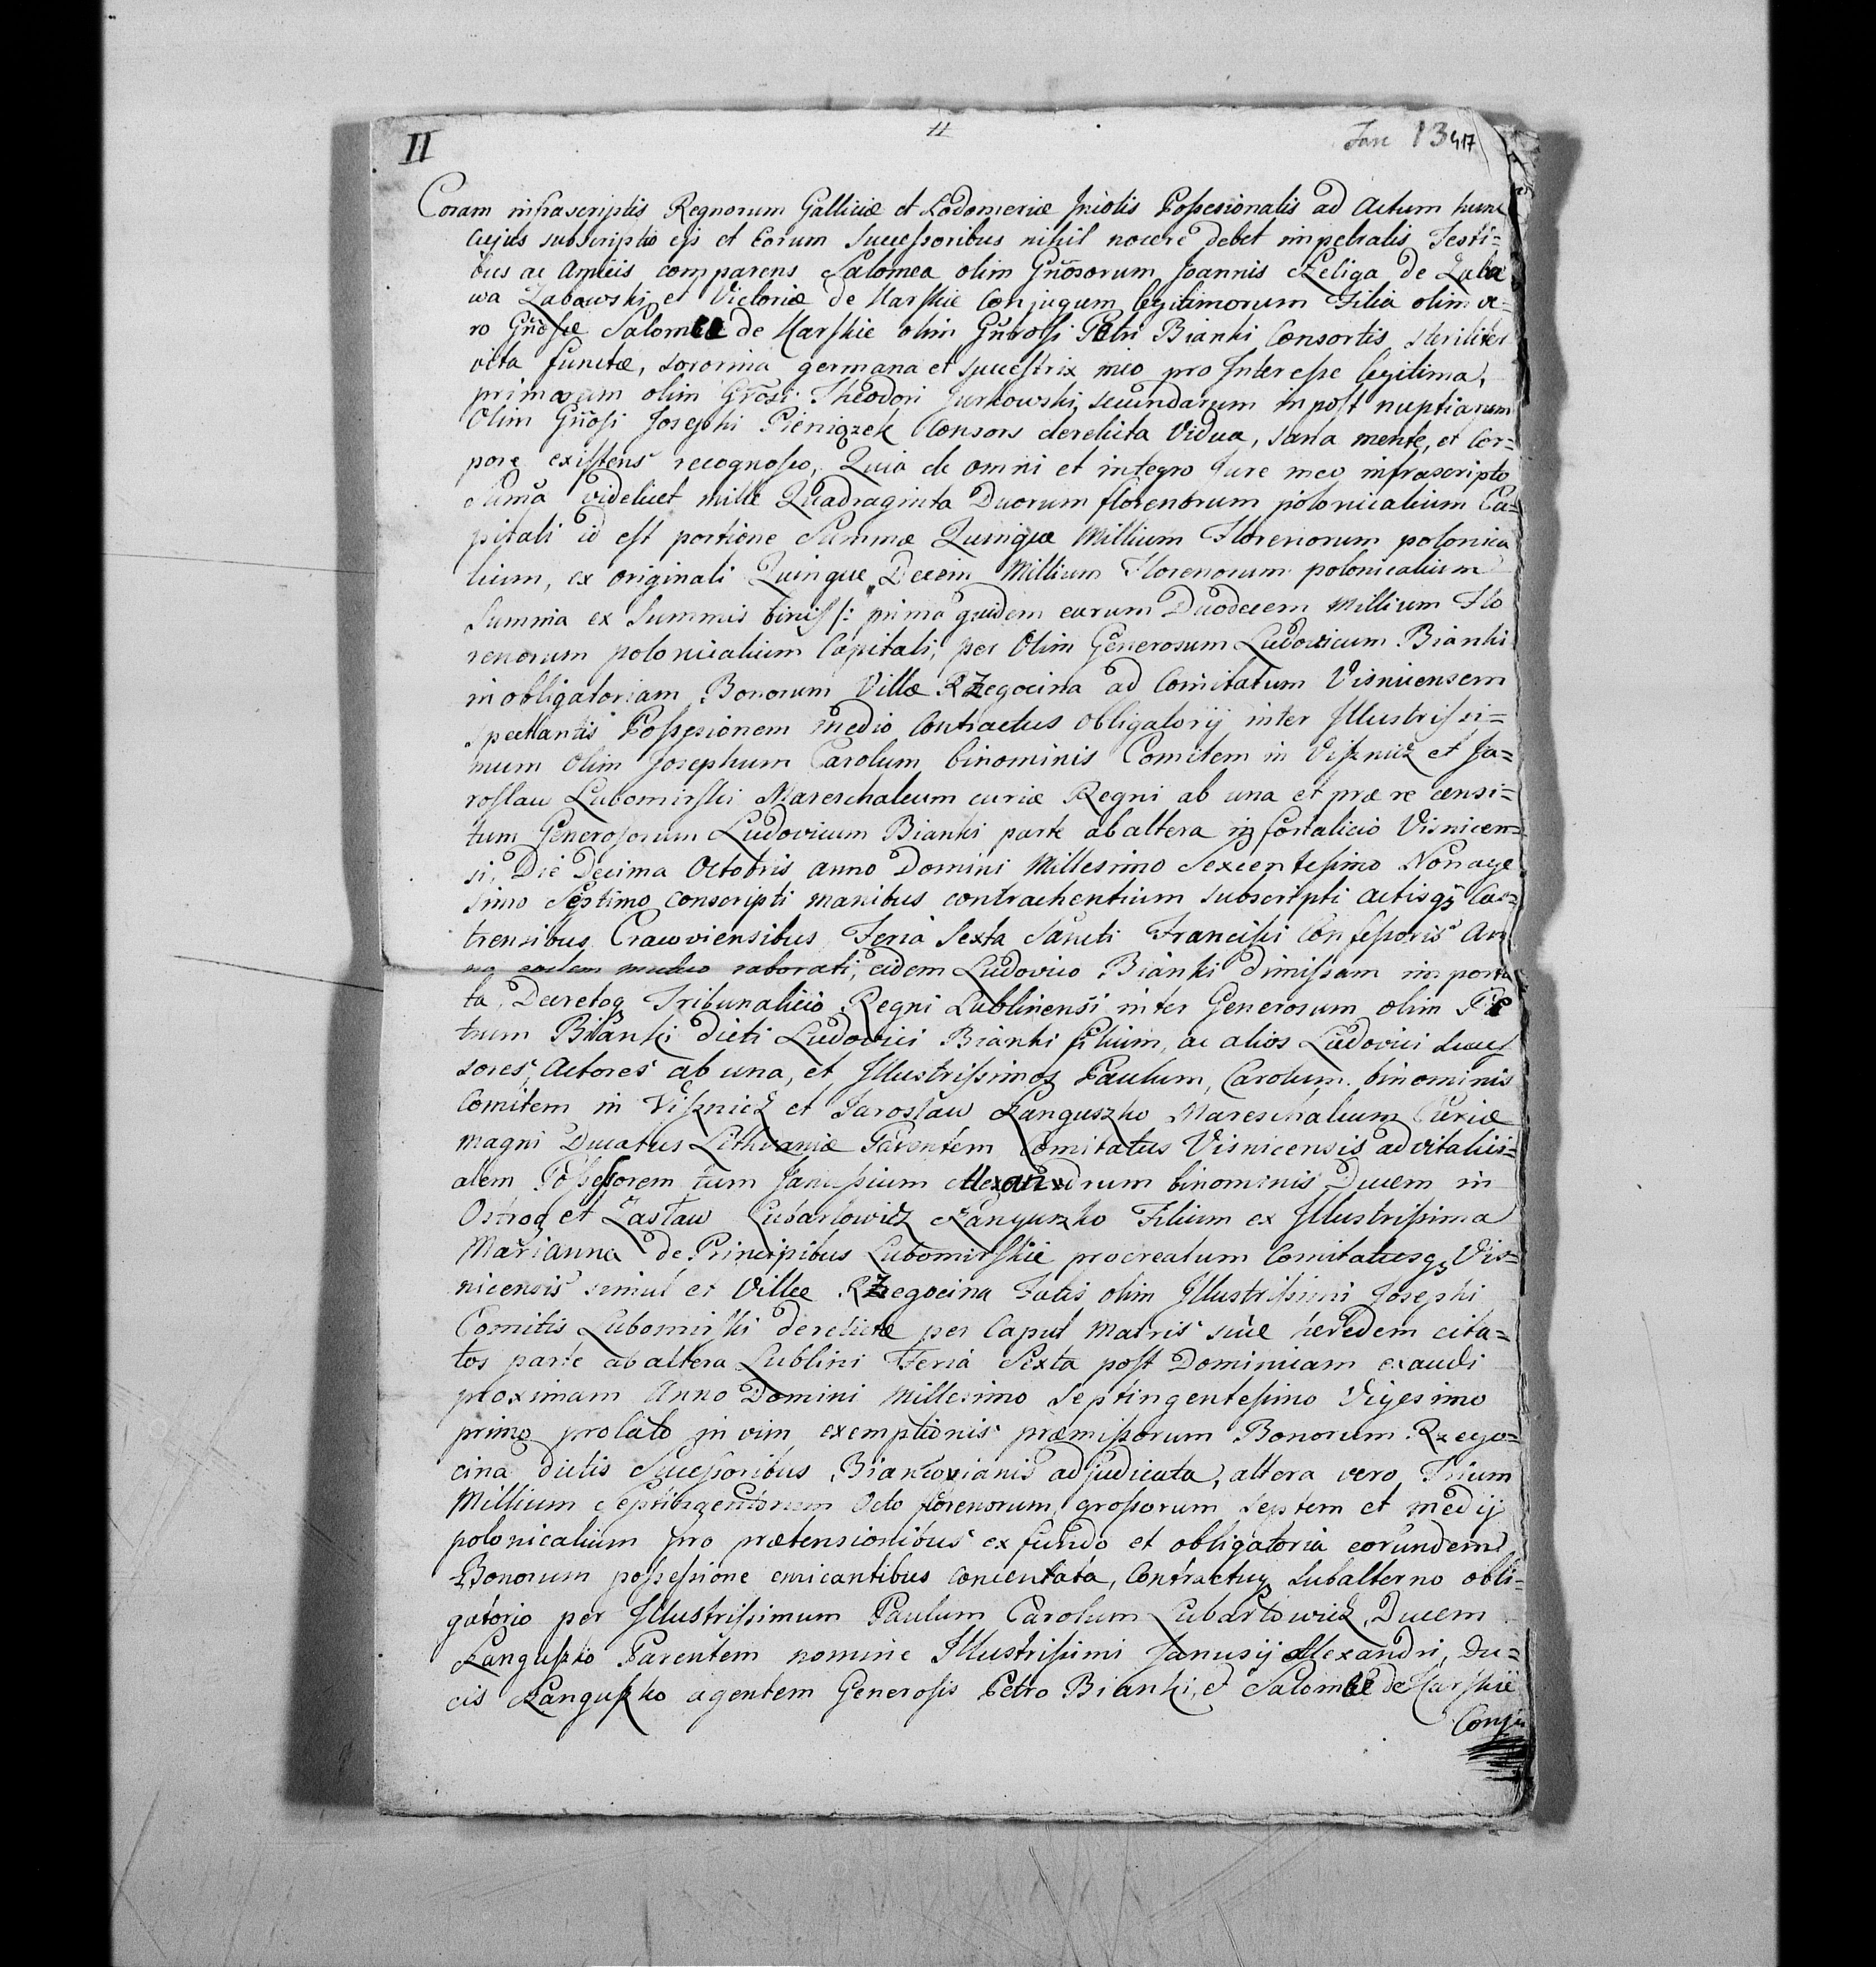 II
11
Fasc 13 417
Coram infrascriptis Regnorum Galliciæ et Lodomeriæ Iniotis Possesionatis ad Actum hunc
cujus subscriptio ejs et Eorum Successoribus nihil nocere debet impetratis Testi=
bus ac Amicis comparens Salomea olim Gñosorum Joannis Szeliga de Zaba
wa Zabawski et Victoriæ de Karskie Conjugum legitimorum Filia olim ve-
ro Gñosæ Salomeæ de Karskie olim Gñrossi Petri Bianki Consortis steriliter
vita functæ, sororina germana et successtrix meo pro Interesse legitima,
primarum olim Gñosi Theodori Jurkowski, secundarum in post nuptiarum
Olim Gñosi Josephi Pieniązek Consors derelicta Vidua, sana mente, et Cor=
pore existens recognosco, Quia de omni et integro Jure meo infrascripto
Suma videlicet mille Quadraginta Duorum florenorum polonicalium Ca=
pitali id est portione Summæ Quinque Millium Florenorum polonica
lium, ex originali Quinque Decem Millium Florenorum polonicalium
Summa ex Summis binis /: prima quidem earum Duodecem Millium Flo
renorum polonicalium Capitali, per Olim Generosum Ludovicum Bianki
in obligatoriam Bonorum Villæ RZegocina ad Comitatum Visnicensem
spectantis Possesionem medio Contractus obligatorij inter Illustrissi=
mum Olim Josephum Carolum binominis Comitem in Visznicz et Ja=
roslau Lubomirski Mareschalcum curiæ Regni ab una et præ re censi=
tum Generosorum Ludovicum Bianki parte ab altera in Fortalicio Visnicen=
si, Die Decima Octobris anno Domini Millesimo Sexcentesimo Nonage
simo Septimo conscripti manibus contrachentium subscripti actisqz Cas=
trensibus Cracoviensibus Feria Sexta Sancti Francisci Confessoris An
no eodem medio raborati, eidem Ludovico Bianki dimissam im porta
ta, Decretoq Tribunalicio Regni Lublinensi inter Generosum olim Pe
trum Bianki dicti Ludovici Bianki filium, ac alios Ludovici succes
sores, Actores ab una, et Illustrissimos Paulum, Carolum binominis
Comitem in Viszniez et Jarosław Sanguszko Mareschalcum Curiæ
magni Ducatus Lithvaniæ Parentem Comitatus Visnicensis advitalici=
alem Possessorem tum Janussium Alexandrum binominis Ducem in
Ostrog et Zasław Lubartowicz Sanguszko Filium ex Illustrissima
Marianna de Principibus Lubomirskie procreatum Comitatusqz Vis=
nicensis simul et Villæ RZegocina Fatis olim Illustrissimi Josephi
Comitis Lubomirski derelictæ per Caput Matris suæ heredem cita=
tos parte ab altera Lublini Feria Sexta post Dominicam exaudi
proximam Anno Domini Millesimo Septingentesimo Vigesimo
primo prolato in vim exemptionis præmissorum Bonorum Rzego=
cina dictis Successoribus Biankovianis adjudicata, altera vero Trium
Millium Septingentorum Octo florenorum grossorum septem et medij
polonicalium pro prætensionibus ex fundo et obligatoria eorundem
Bonorum possessione emicantibus concentata, Contractuq Subalterno obli=
gatorio per Illustrissimum Paulum Carolum Lubartowicz Ducem
Sanguszko Parentem nomine Illustrissimi Janusij Alexandri, Du=
cis Sanguszko agentem Generosis Petro Bianki, et Salomeæ de Karskie
Conju